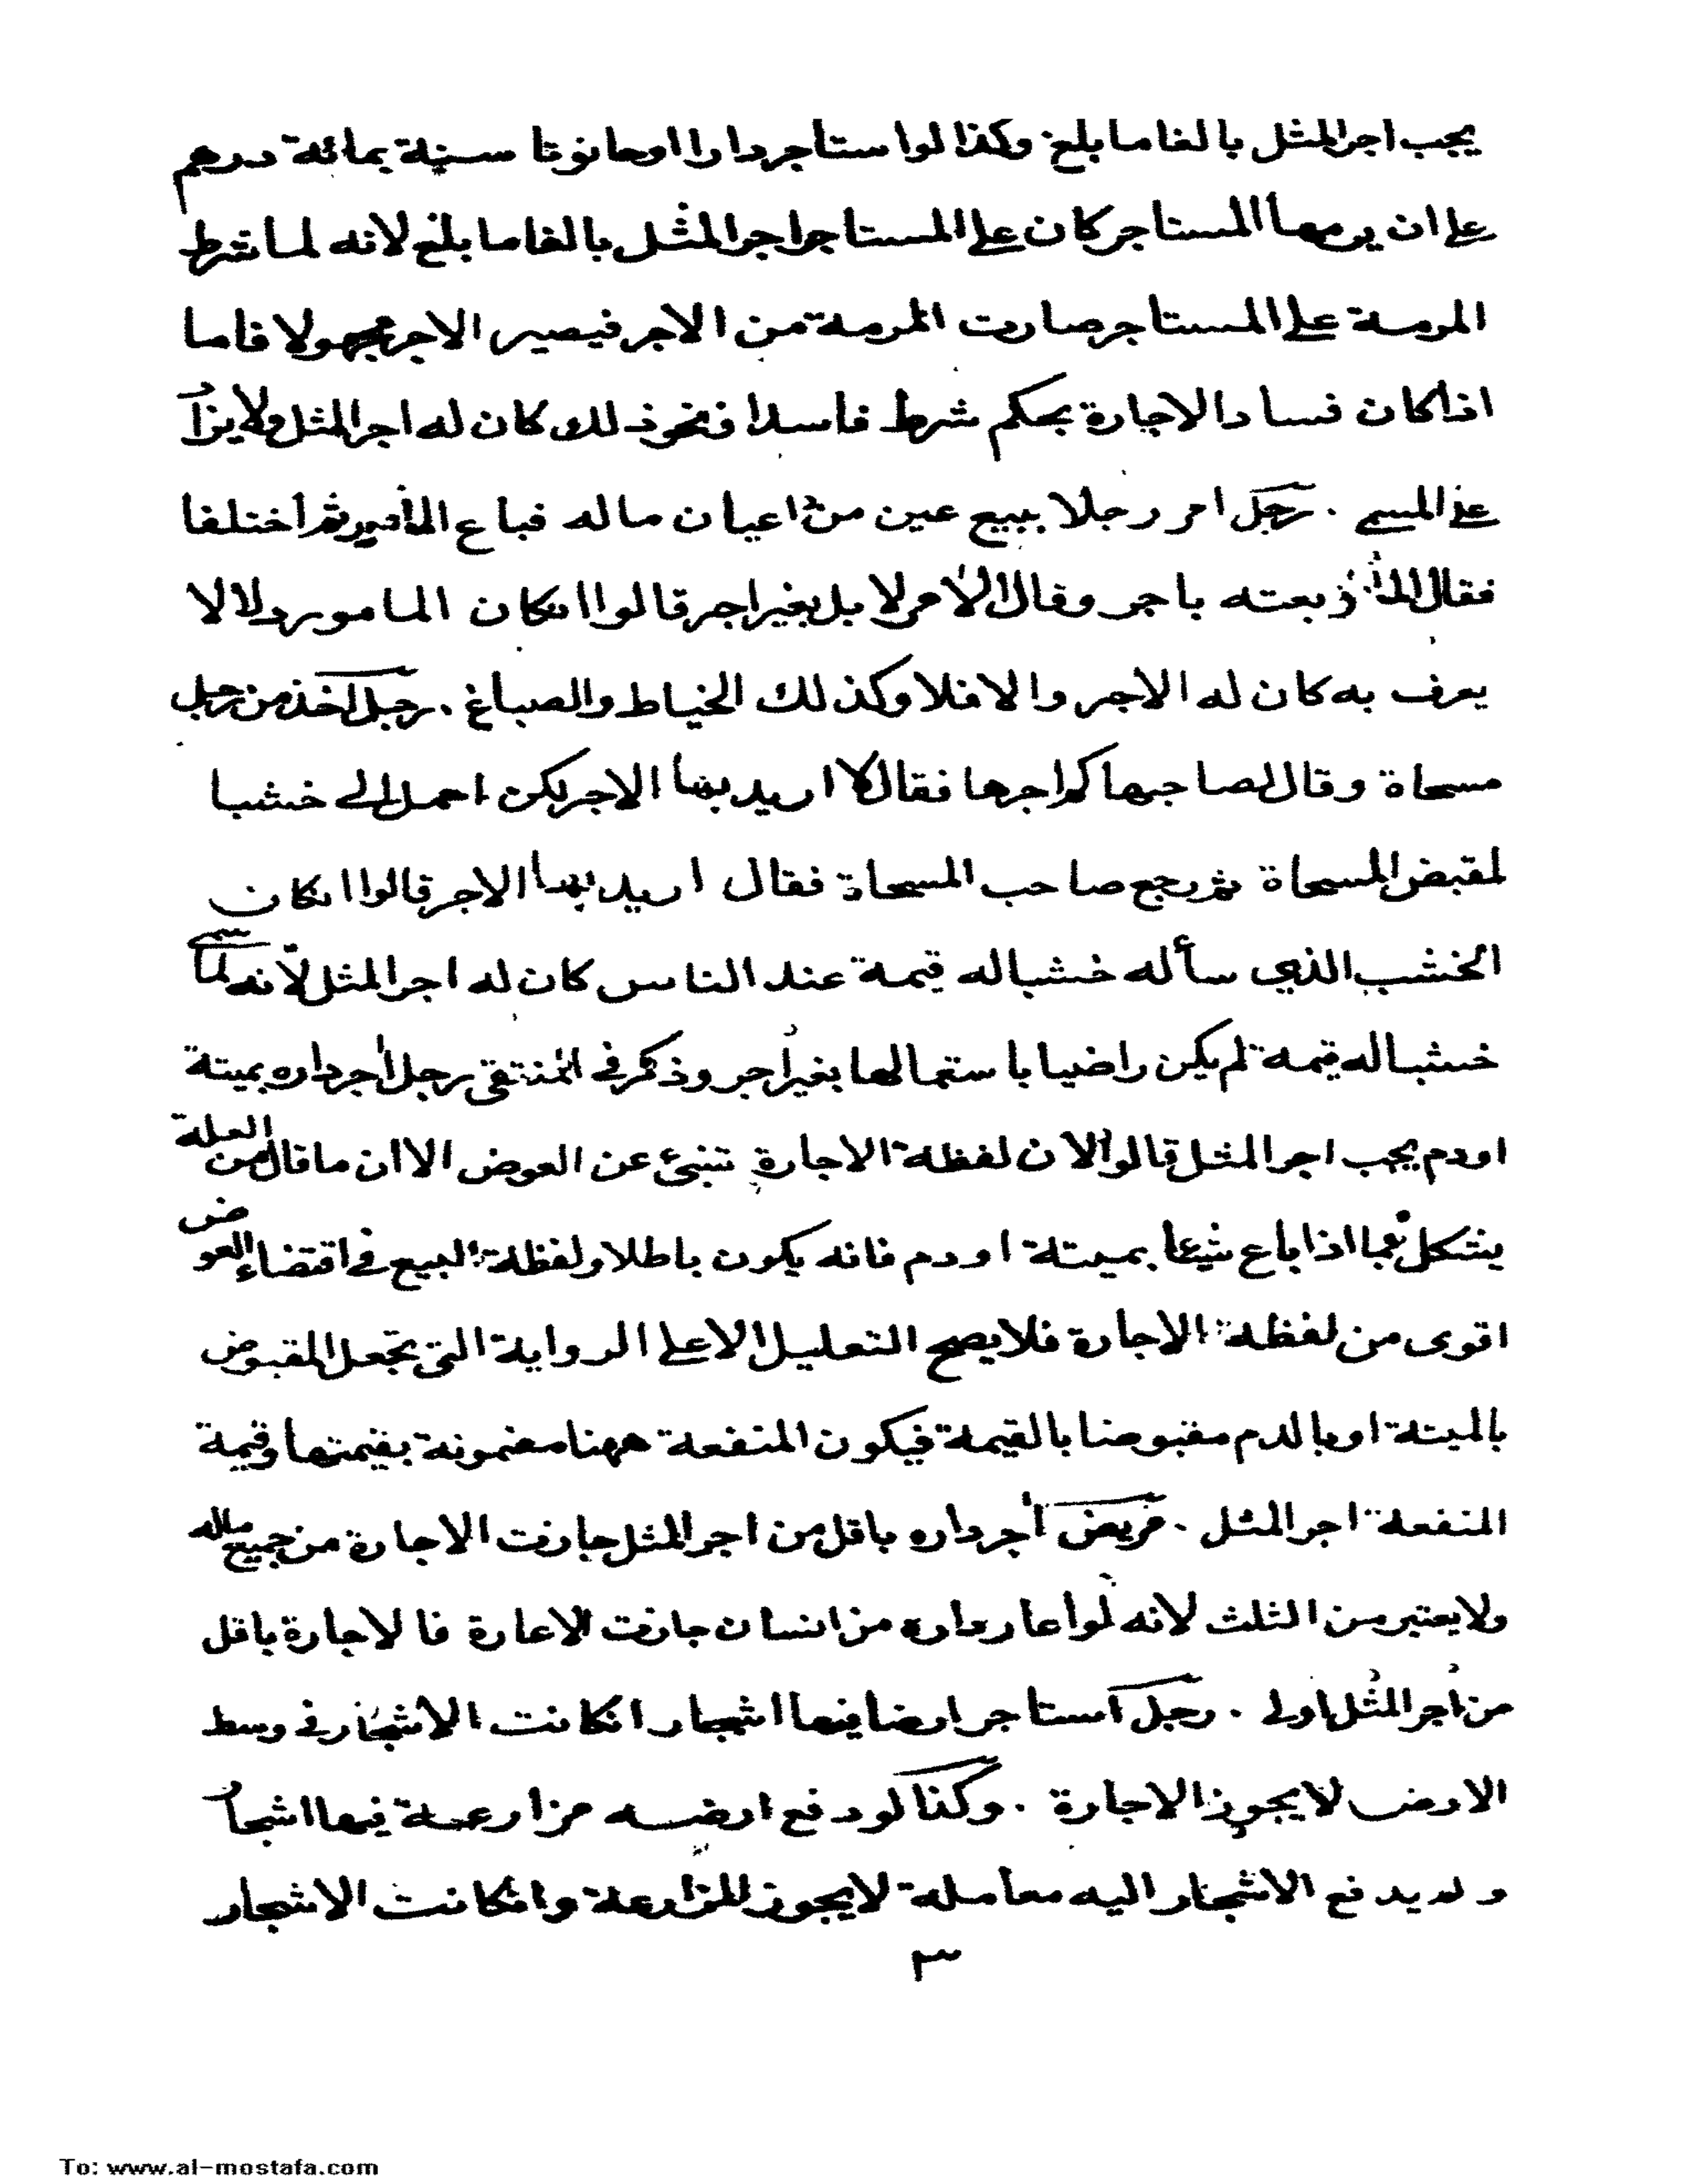 يجب اجر المثل بالغا ما بلغ وكذا لو استاجر دارا او حانوتا سنة بمائة درهم
على ان يرمها المستاجر كان على المستاجر اجر المثل بالغا ما بلغ لانه لما شرط
المرمة على المستاجر صارت المرمة من الاجر فيصير الاجر مجهولا فاما
اذا كان فساد الاجارة بحكم شرط فاسد او نحو ذلك كان له اجر المثل ولا يزاد
على المسمى . رجل امر رجلا ببيع عين من اعيان ماله فباع المامور ثم اختلفا
فقال بعته باجر وقال الآمر لا بل بغير اجر قالوا انكان المامور دلالا
يعرف به كان له الاجر والا فلا وكذلك الخياط والصباغ . رجل اخذ من رجل
مسحاة وقال لصاحبها كم اجرها فقال لا اريد بها الاجر لكن احمل الي خشبا
لمقبض المسحاة ثم رجع صاحب المسحاة فقال اريد بها الاجر قالوا انكان
الخشب الذي سأله خشبا له قيمة عند الناس كان له اجر المثل لانه لما سمى
خشبا له قيمة لم يكن راضيا باستعمالها بغير اجر وذكر في المنتقى رجل اجر داره بميتة
او دم يجب اجر المثل قالوا لان لفظة الاجارة تنبئ عن العوض الا ان ما قال من العلة
يشكل بما اذا باع شيئا بميتة او دم فانه يكون باطلا ولفظة البيع في اقتضاء العوض
اقوى من لفظة الاجارة فلا يصح التعليل الا على الرواية التي تجعل المقبوض
بالميتة او بالدم مقبوضا بالقيمة فيكون المنفعة ههنا مضمونة بقيمتها وقيمة
المنفعة اجر المثل . مريض آجر داره باقل من اجر المثل جازت الاجارة من جميع ماله
ولا يعتبر من الثلث لانه لو اعار داره من انسان جازت الاعارة فالاجارة باقل
من اجر المثل اولى . رجل استاجر ارضا فيها اشجار انكانت الاشجار في وسط
الارض لا يجوز الاجارة . وكذا لو دفع ارضه مزارعة فيها اشجار
ولم يدفع الاشجار اليه معاملة لا يجوز المزارعة وانكانت الاشجار
٣
To: www.al-mostafa.com